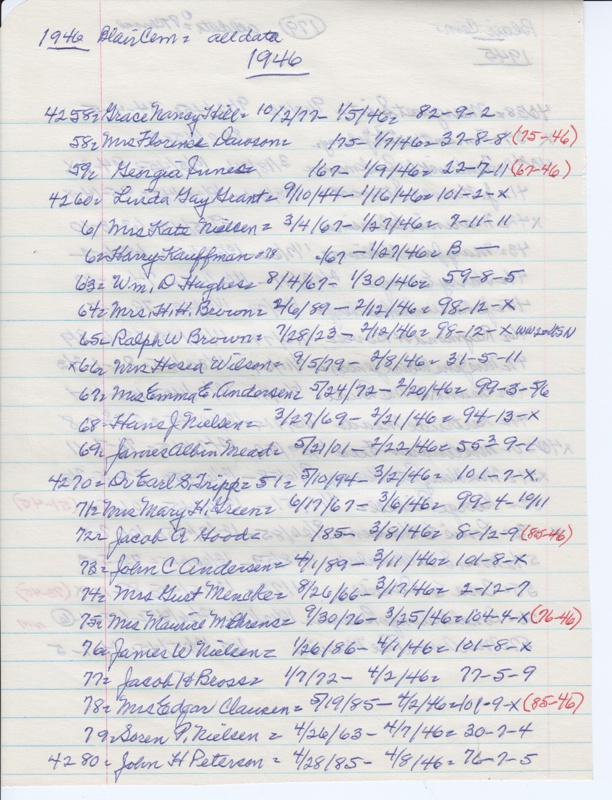 1946 Blair Cem = all data
1946
4258 = Grace Nancy Hill = 10/2/77 - 1/5/46 = 82-9-2
58 = Mrs Florence Dawson = 175 - 1/7/46 = 37-8-8 (75-46)
59 = Georgia Junes = 167 - 1/9/46 = 22-7-11 (67-46)
4260 = Linda Gay Grant = 9/10/44 - 1/16/46 = 101-2-X
61 Mrs Kate Nielsen = 3/4/67 - 1/27/46 = 7-11-11
62 Harry Kauffman = 78 /67 - 1/27/46 = B —
63 = Wm. D Hughes = 8/4/67 - 1/30/46 = 59-8-5
64 = Mrs. H. H. Brown = 2/6/89 - 2/12/46 = 98-12-X
65 = Ralph W Brown = 7/28/23 - 2/12/46 = 98-12-X
X66 = Mrs Hosea Wilson = 9/5/79 - 2/8/46 = 31-5-11
67 = Mrs Emma E. Andersen = 5/24/72 - 2/20/46 = 99-3-5/6
68 - Hans J. Nielsen = 3/27/69 - 2/21/46 = 94-13-X
69 = James Albin Mead = 5/21/01 - 2/22/46 = 55 3 9-1
4270 = Dr Earl G Tripp = 51 = 5/10/94 - 3/2/46 = 101-7-X
71 = Mrs Mary H. Green = 6/17/67 - 3/6/46 = 99-4-10/11
72 = Jacob A Hood = 185 - 3/8/46 = 8-12-9 (85-46)
73 = John C Andersen = 4/1/89 - 3/11/46 = 101-8-X
74 = Mrs Gust Mencke = 8/26/66 - 3/17/46 = 2-12-7
75 = Mrs Maurice = 9/30/76 - 3/25/46 = 104-4-X (76-46)
76 = James W Nielsen = 1/26/86 - 4/1/46 = 101-8-X
77 = Jacob H Bross = 1/7/72 - 4/2/46 = 77-5-9
78 = Mrs Edgar Clausen = 5/19/85 - 4/2/46 = 101-9-X (85-46)
79 = Soren P. Nielsen = 4/26/63 - 4/7/46 = 30-7-4
4280 = John H Peterson = 4/28/85 - 4/8/46 = 76-7-5